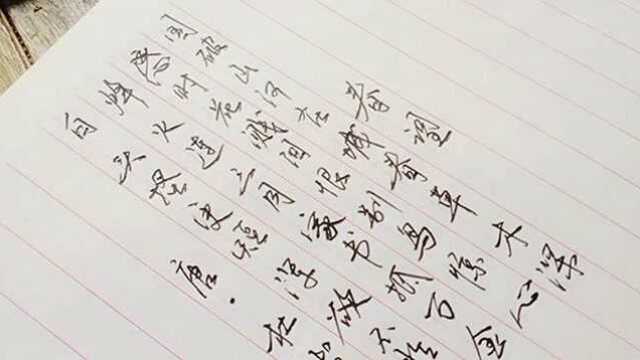 春望
国破山河在城春草木深
感时花溅泪恨别鸟惊心
烽火连三月家书抵万金
白头搔更短浑欲不胜
唐·杜甫